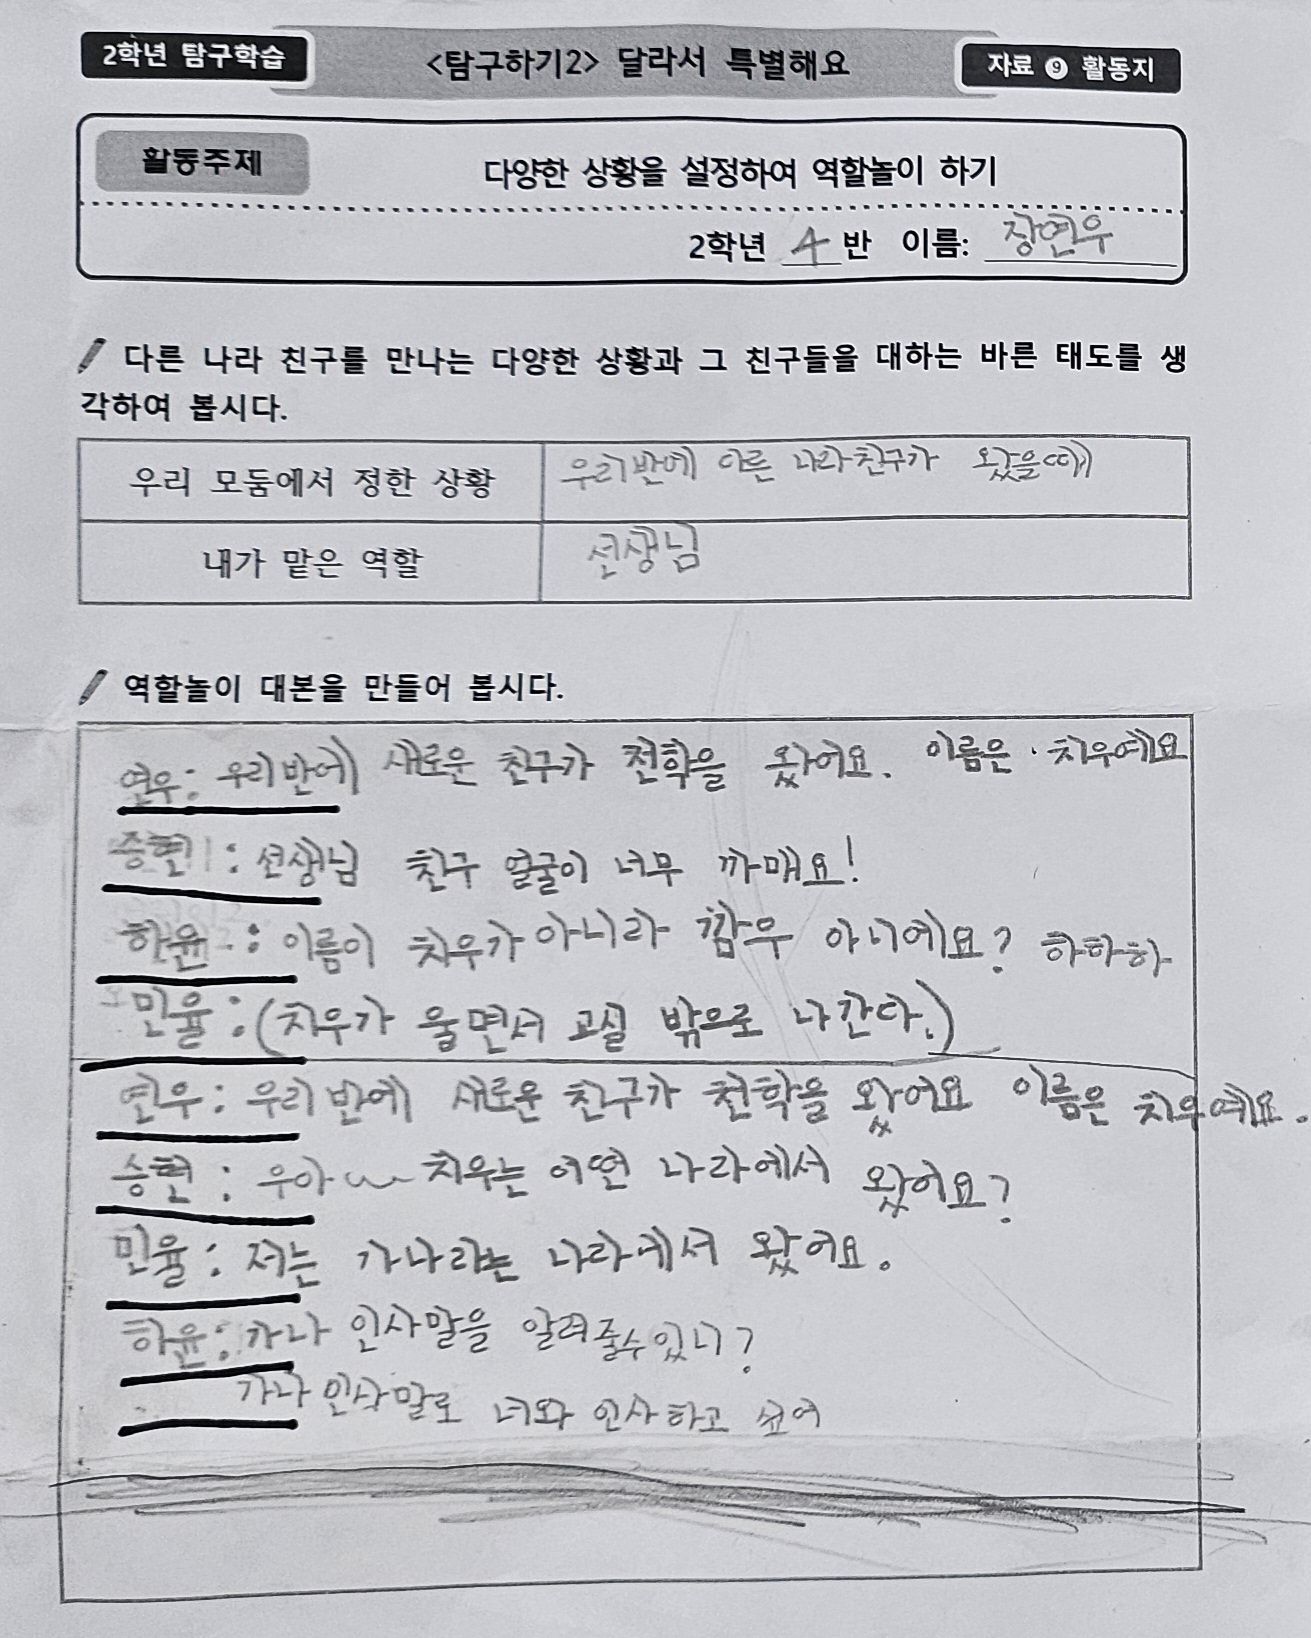 2학년 탐구학습
<탐구하기2> 달라서 특별해요
자료 ❾ 활동지
활동주제
다양한 상황을 설정하여 역할놀이 하기
2학년 4 반 이름: 장연우
다른 나라 친구를 만나는 다양한 상황과 그 친구들을 대하는 바른 태도를 생
각하여 봅시다.
우리 모둠에서 정한 상황
우리반에 다른 나라친구가 왔을때
내가 맡은 역할
선생님
역할놀이 대본을 만들어 봅시다.
연우: 우리반에 새로운 친구가 전학을 왔어요. 이름은 치우예요
승현: 선생님 친구 얼굴이 너무 까매요!
하윤: 이름이 치우가 아니라 깜우 아니에요? 하하하
민율: (치우가 울면서 교실 밖으로 나간다.)
연우: 우리반에 새로운 친구가 전학을 왔어요 이름은 치우예요.
승현: 우아~~ 치우는 어떤 나라에서 왔어요?
민율: 저는 가나라는 나라에서 왔어요.
하윤: 가나 인사말을 알려줄수있니?
가나 인사말로 너와 인사하고 싶어